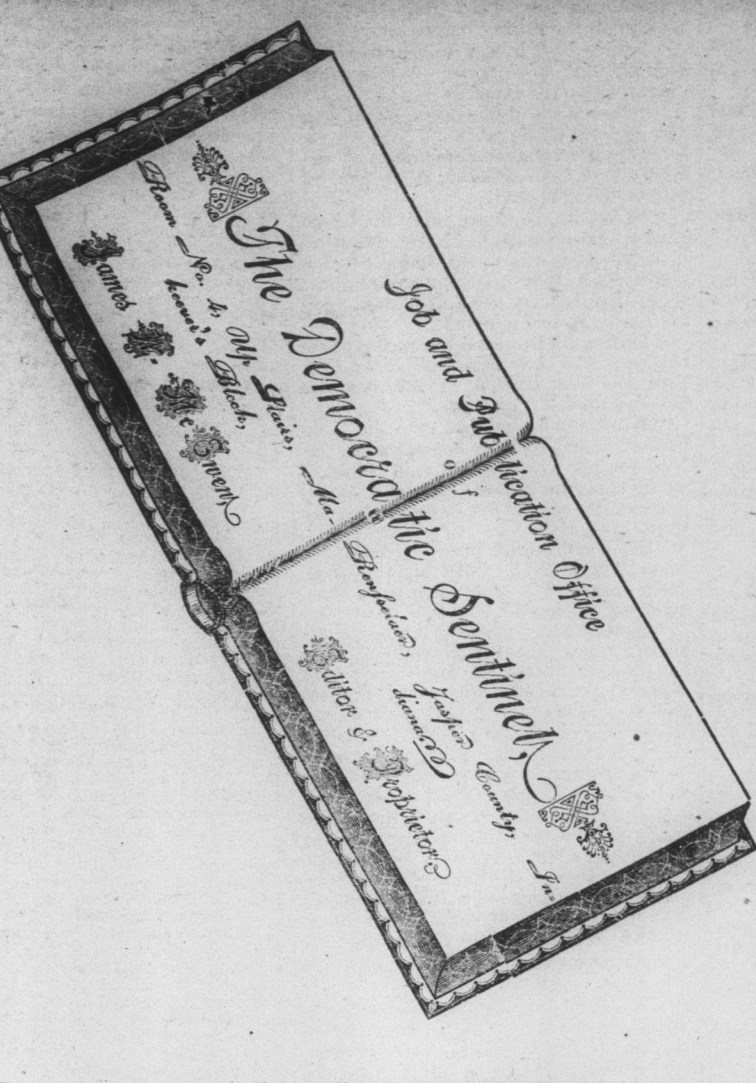 Job and Publication Office
of
The Democratic Sentinel,
Room No. 4, Up Stairs, Ma-
keever's Block,
Rensselaer, Jasper County, In-
diana
James W. McEwen,
Editor & Proprietor